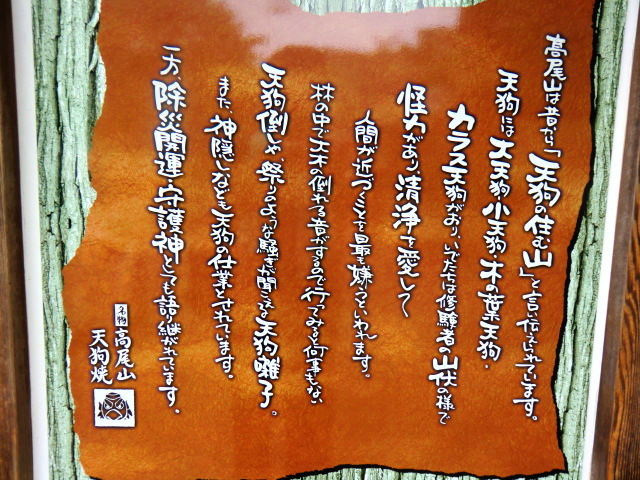 高尾山は昔から「天狗の住む山」と言い伝えられています。
天狗には大天狗・小天狗・木の葉天狗・
カラス天狗がおり、いでたちは修験者・山伏の様で
怪力があり清浄を愛して
人間が近づくことを最も嫌うといわれます。
林の中で大木の倒れる音がするので行ってみると何事もない
天狗倒しや、祭りのような騒ぎが聞こえる天狗囃子。
また、神隠しなども天狗の仕業とされています。
一方、除災開運・守護神としても語り継がれています。
名物
高尾山
天狗焼